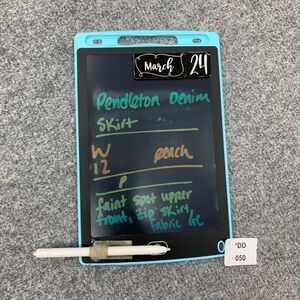 March 24
Pendleton Denim
Skirt
W peach
12
P
faint spot upper
front, zip
fabric GC
*DD
050